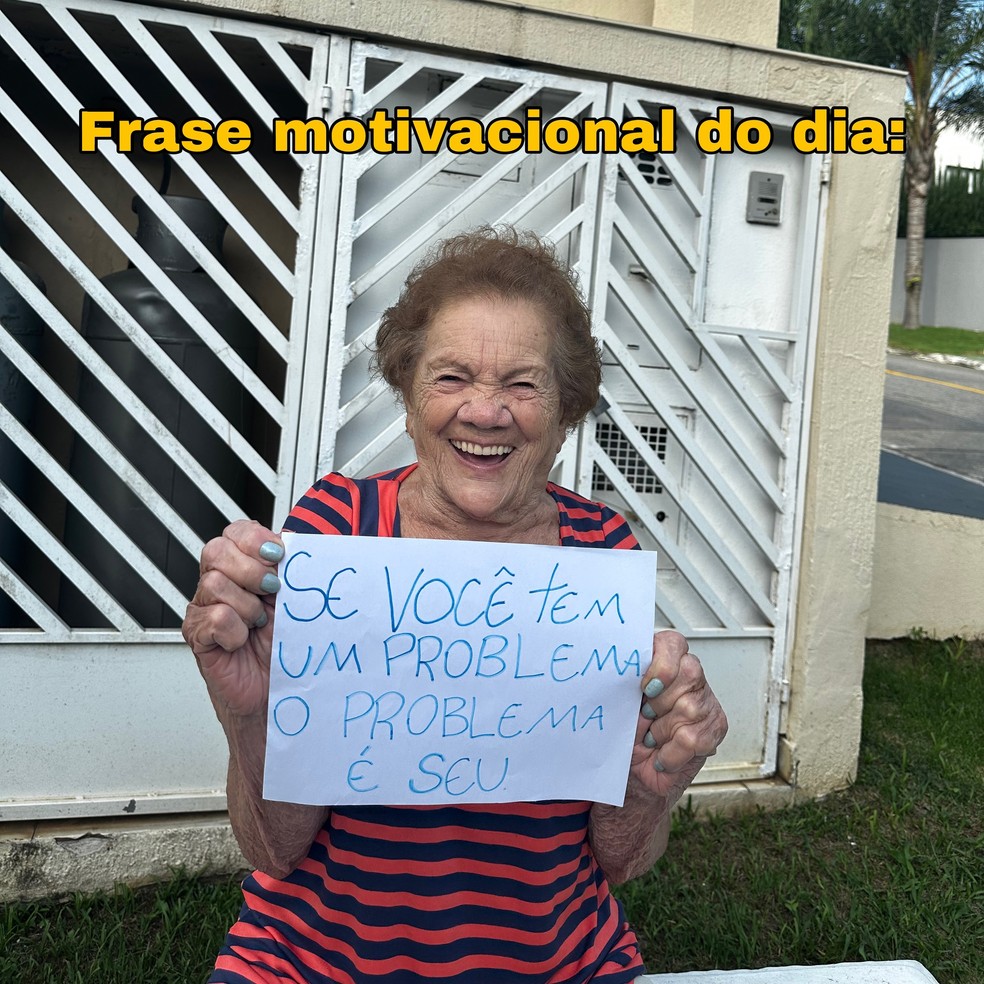 Frase motivacional do dia:
SE VOCÊ TEM
UM PROBLEMA
O PROBLEMA
É SEU.